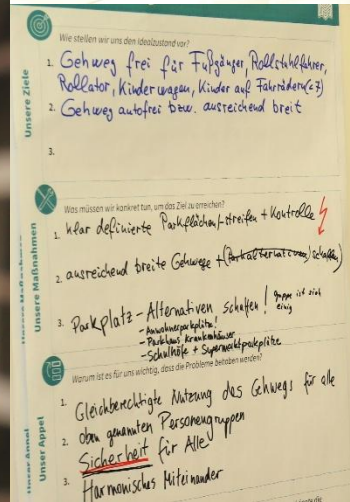 Unsere Ziele
Wie stellen wir uns den Idealzustand vor?
1. Gehweg frei für Fußgänger, Rollstuhlfahrer,
Rollator, Kinderwagen, Kinder auf Fahrrädern (<7)
2. Gehweg autofrei bzw. ausreichend breit
3.
Unsere Maßnahmen
Was müssen wir konkret tun, um das Ziel zu erreichen?
1. klar definierte Parkflächen/-streifen + Kontrolle
2. ausreichend breite Gehwege + (Parkalternativen) schaffen
3. Parkplatz-Alternativen schaffen! Gruppe ist sich
einig
- Anwohnerparkplätze!
- Parkhaus Krankenhäuser
- Schulhöfe + Supermarktparkplätze
Unser Appel
Warum ist es für uns wichtig, dass die Probleme behoben werden?
1. Gleichberechtigte Nutzung des Gehwegs für alle
oben genannten Personengruppen
2. Sicherheit für Alle
3. Harmonisches Miteinander